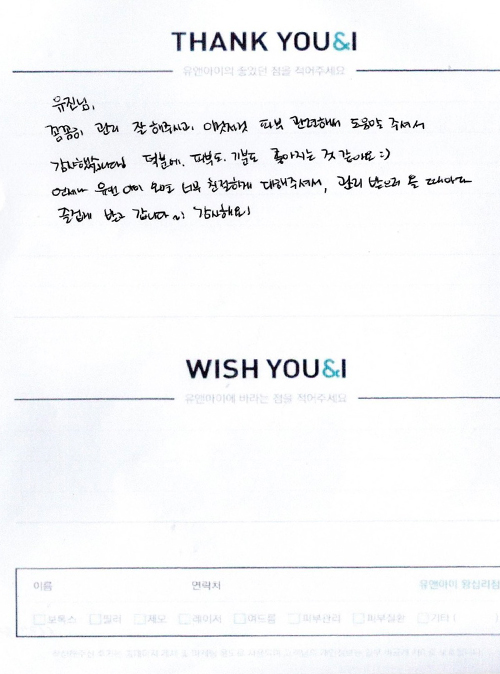 THANK YOU&I
유앤아이의 좋았던 점을 적어주세요
유진님,
꼼꼼히 관리 잘 해주시고, 이것저것 피부 관련해서 도움말 주셔서
감사했습니다! 덕분에, 피부도, 기분도 좋아지는 것 같아요 :)
언제나 유앤아이 오면 너무 친절하게 대해주셔서, 관리 받으러 올 때마다
즐겁게 받고 갑니다~! 감사해요!
WISH YOU&I
유앤아이에 바라는 점을 적어주세요
이름 연락처 유앤아이 왕십리점
보톡스 필러 제모 레이저 여드름 피부관리 피부질환 기타 (